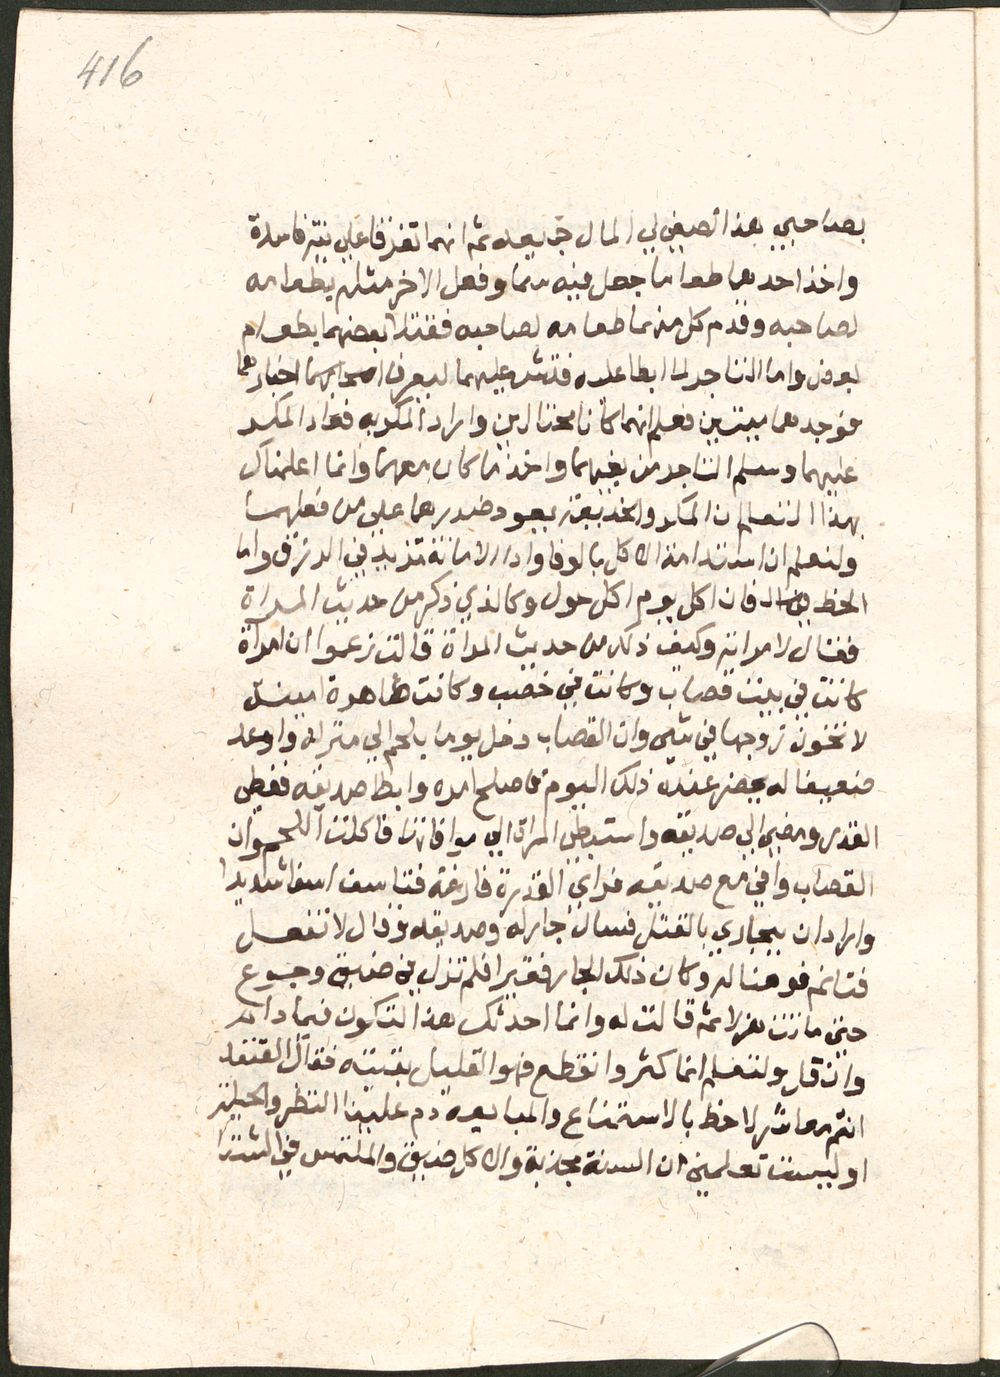 416
بصاحبي هذا لصفي لي المال جميعه ثم انهما تفرقا علي نية فاسدة
واخذ احدهما طعاما جعل فيه سما وفعل الاخر مثله بطعامه
لصاحبه وقدم كل منهما طعامه لصاحبه فقتلا بعضهما بطعام
بعض واما التاجر لما ابطا عليه فتش عليهما ليعرف اخبارهما
فوجدهما ميتين فعلم انهما كانا محتالين وارادا المكر به فعاد المكر
عليهما وسلم التاجر من بغيهما واخذ ما كان معهما وانما اعلمناك
بهذا لتعلم ان المكر والخديعة يعود ضررهما علي من فعلهما
ولتعلم ان استدامة الاكل بالوفا واداء الامانة تزيد في الرزق واما
الحظ فان اكل يوم اكل حول وكالذي ذكر من حديث المراة
فقال لامراته وكيف ذلك من حديث المراة قالت زعموا ان امراة
كانت في بيت قصاب وكانت في خصب وكانت طاهرة امينة
لا تخون زوجها في شي وان القصاب دخل يوما بلحم الي منزله واوعد
ضيفا له يحضر عنده ذلك اليوم فاصلح امره وابطا صديقه فغطي
القدر ومضي الي صديقه واستبطن المراة الي موافاتها فاكلت اللحم وان
القصاب وافي مع صديقه فراي القدرة فارغة فتاسف اسفا شديدا
واراد ان يجازي بالقتل فسال جار له وصديقه وقال لا تفعل
فتاثم فوهبها له وكان ذلك الجار فقيرا فلم تزل في ضيق وجوع
حتي ماتت هزلا ثم قالت له وانما احدثك هذا لتكون فيما دام
وان قل ولتعلم انما كثر وانقطع فهو القليل بعينه فقال القنفد
انتم معاشر لاحظ بالاستمتاع والمبايعة دم علينا النظر والحيلة
اوليست تعلمين ان السنة مجدبة والاكل ضيق والملتمس في الشتا